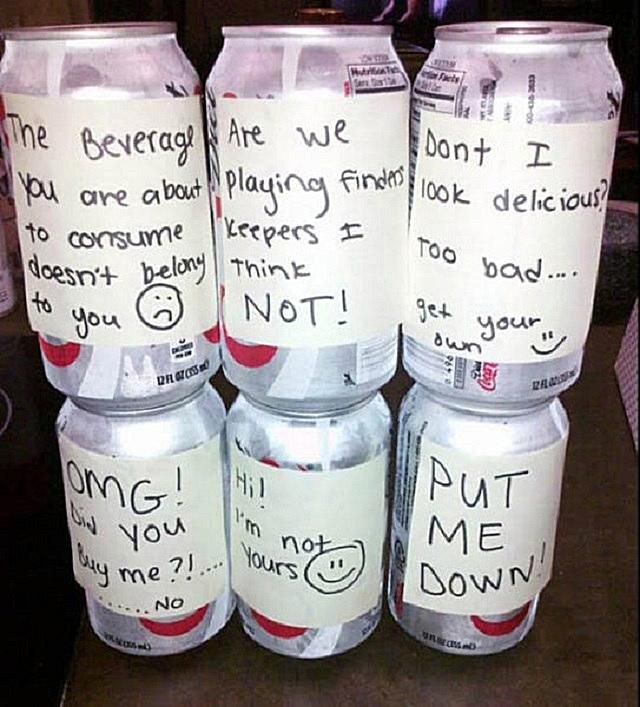 The Beverage
you are about
to consume
doesn't belong
to you
Are we
playing finders
keepers I
Think
NOT!
Dont I
look delicious?
Too bad....
get your
own
OMG!
Did you
Buy me?!....
......NO
Hi!
I'm not
yours
PUT
ME
DOWN!
Nutrition Facts
12 FL OZ (355 mL)
12 FL OZ
12 FL OZ (355 mL)